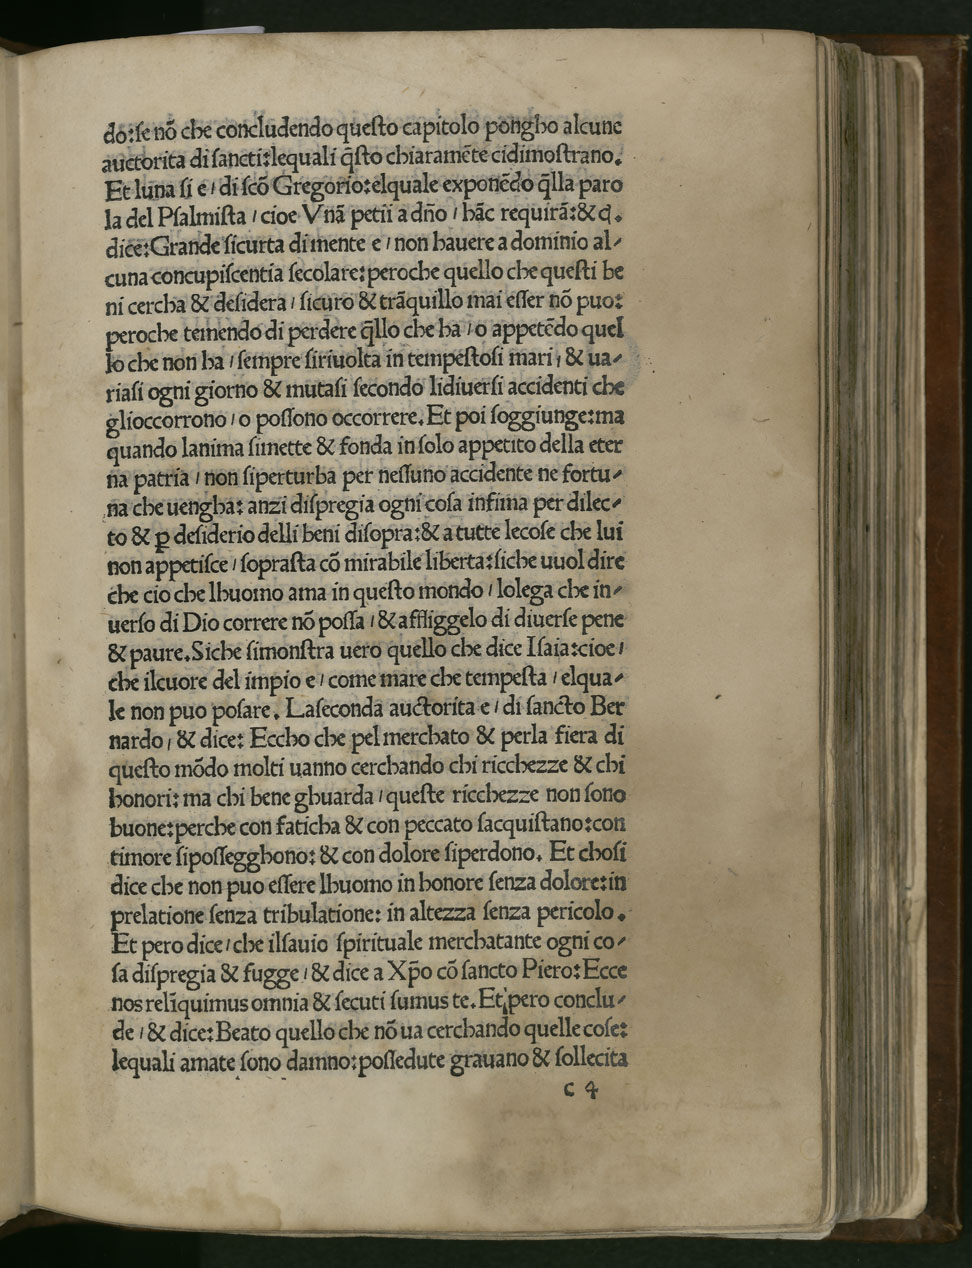 do:ſe nō che concludendo queſto capitolo pongho alcune
auctorita di ſancti:lequali q̄ſto chiaramēte cidimoſtrano.
Et luna ſi e / di ſcō Gregorio:elquale exponēdo q̄lla paro
la del Pſalmiſta / cioe Vnā petii a dn̄o / hāc requirā:&
dice:Grande ſicurta di mente e / non hauere a dominio al⸗
cuna concupiſcentia ſecolare:peroche quello che queſti be
ni cercha & deſidera / ſicuro & trāquillo mai eſſer nō puo:
peroche temendo di perdere q̄llo che ha / o appetēdo quel
lo che non ha / ſempre ſiriuolta in tempeſtoſi mari / & ua⸗
riaſi ogni giorno & mutaſi ſecondo lidiuerſi accidenti che
glioccorrono / o poſſono occorrere. Et poi ſoggiunge:ma
quando lanima ſimette & fonda in ſolo appetito della eter
na patria / non ſiperturba per neſſuno accidente ne fortu⸗
na che uengha: anzi diſpregia ogni coſa infima per dilec⸗
to & ꝑ deſiderio delli beni diſopra:& a tutte lecoſe che lui
non appetiſce / ſopraſta cō mirabile liberta:ſiche uuol dire
che cio che lhuomo ama in queſto mondo / lolega che in⸗
uerſo di Dio correre nō poſſa / & affliggelo di diuerſe pene
& paure.Siche ſimonſtra uero quello che dice Iſaia:cioe /
che ilcuore del impio e / come mare che tempeſta / elqua⸗
le non puo poſare. Laſeconda auctorita e / di ſancto Ber
nardo / & dice: Eccho che pel merchato & perla fiera di
queſto mōdo molti uanno cerchando chi ricchezze & chi
honori: ma chi bene ghuarda / queſte ricchezze non ſono
buone:perche con faticha & con peccato ſacquiſtano:con
timore ſipoſſegghono: & con dolore ſiperdono. Et choſi
dice che non puo eſſere lhuomo in honore ſenza dolore:in
prelatione ſenza tribulatione: in altezza ſenza pericolo.
Et pero dice / che ilſauio ſpirituale merchatante ogni co⸗
ſa diſpregia & fugge / & dice a Xp̄o cō ſancto Piero:Ecce
nos reliquimus omnia & ſecuti ſumus te.Et pero conclu⸗
de / & dice:Beato quello che nō ua cerchando quelle coſe:
lequali amate ſono damno:poſſedute grauano & ſollecita
c 4